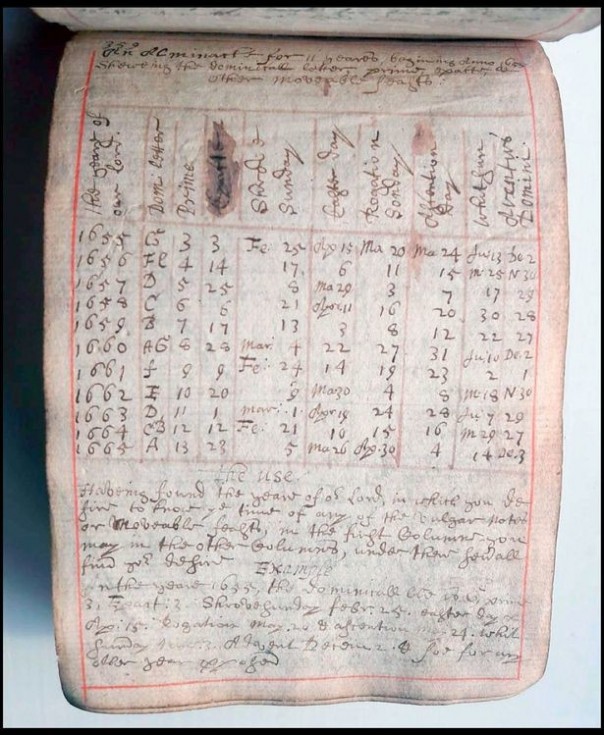 An Alminack for 11 yeares, begining Anno 1655
Sheweing the Dominicall letter, prime, epactt &
other moveable feasts:
the yeare of our lord. Dom: letter Prime Shrove Sunday Easter day Rogation Sonday Assention Day Whitsun, Adventus Domini.
1655 G 3 3 Fe: 25 Ap 15 Ma 20 Ma 24 Ju: 3 De 2
1656 FE 4 14 17 6 11 15 M 25 N 30
1657 D 5 25 8 Ma 29 3 7 17 29
1658 C 6 6 21 Apr 11 16 20 30 28
1659 B 7 17 13 3 8 12 22 27
1660 AG 8 28 Mar: 4 22 27 31 Ju 10 De: 2
1661 F 9 9 Fe: 24 14 19 23 2 1
1662 E 10 20 9 Ma 30 4 8 M 18 N 30
1663 D 11 1 mar: 1 Apr 19 24 28 Ju 7 29
1664 CB 12 12 Fe: 21 10 15 16 M 29 27
1665 A 13 23 5 Ma 26 Ap: 30 4 14 De 3
The Use
Haveing found the yeare of or lord, in which you de
sire to know ye time of any of the vulgar Notes
or Moveable feasts, in the first Columne you
may in the other Columns, under their
find yor desire
Example
In the yeare 1655, the Dominicall
3, Epact: 3. Shrove sunday febr. 25. easter day
Apr. 15. Rogation May. 20 & assention May 24. Whit
sunday June: 3. Advent Decem 2. & soe for any
other year